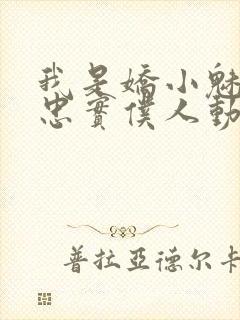 我是嬌小魅
忠實僕人動
普拉亞德尔卡